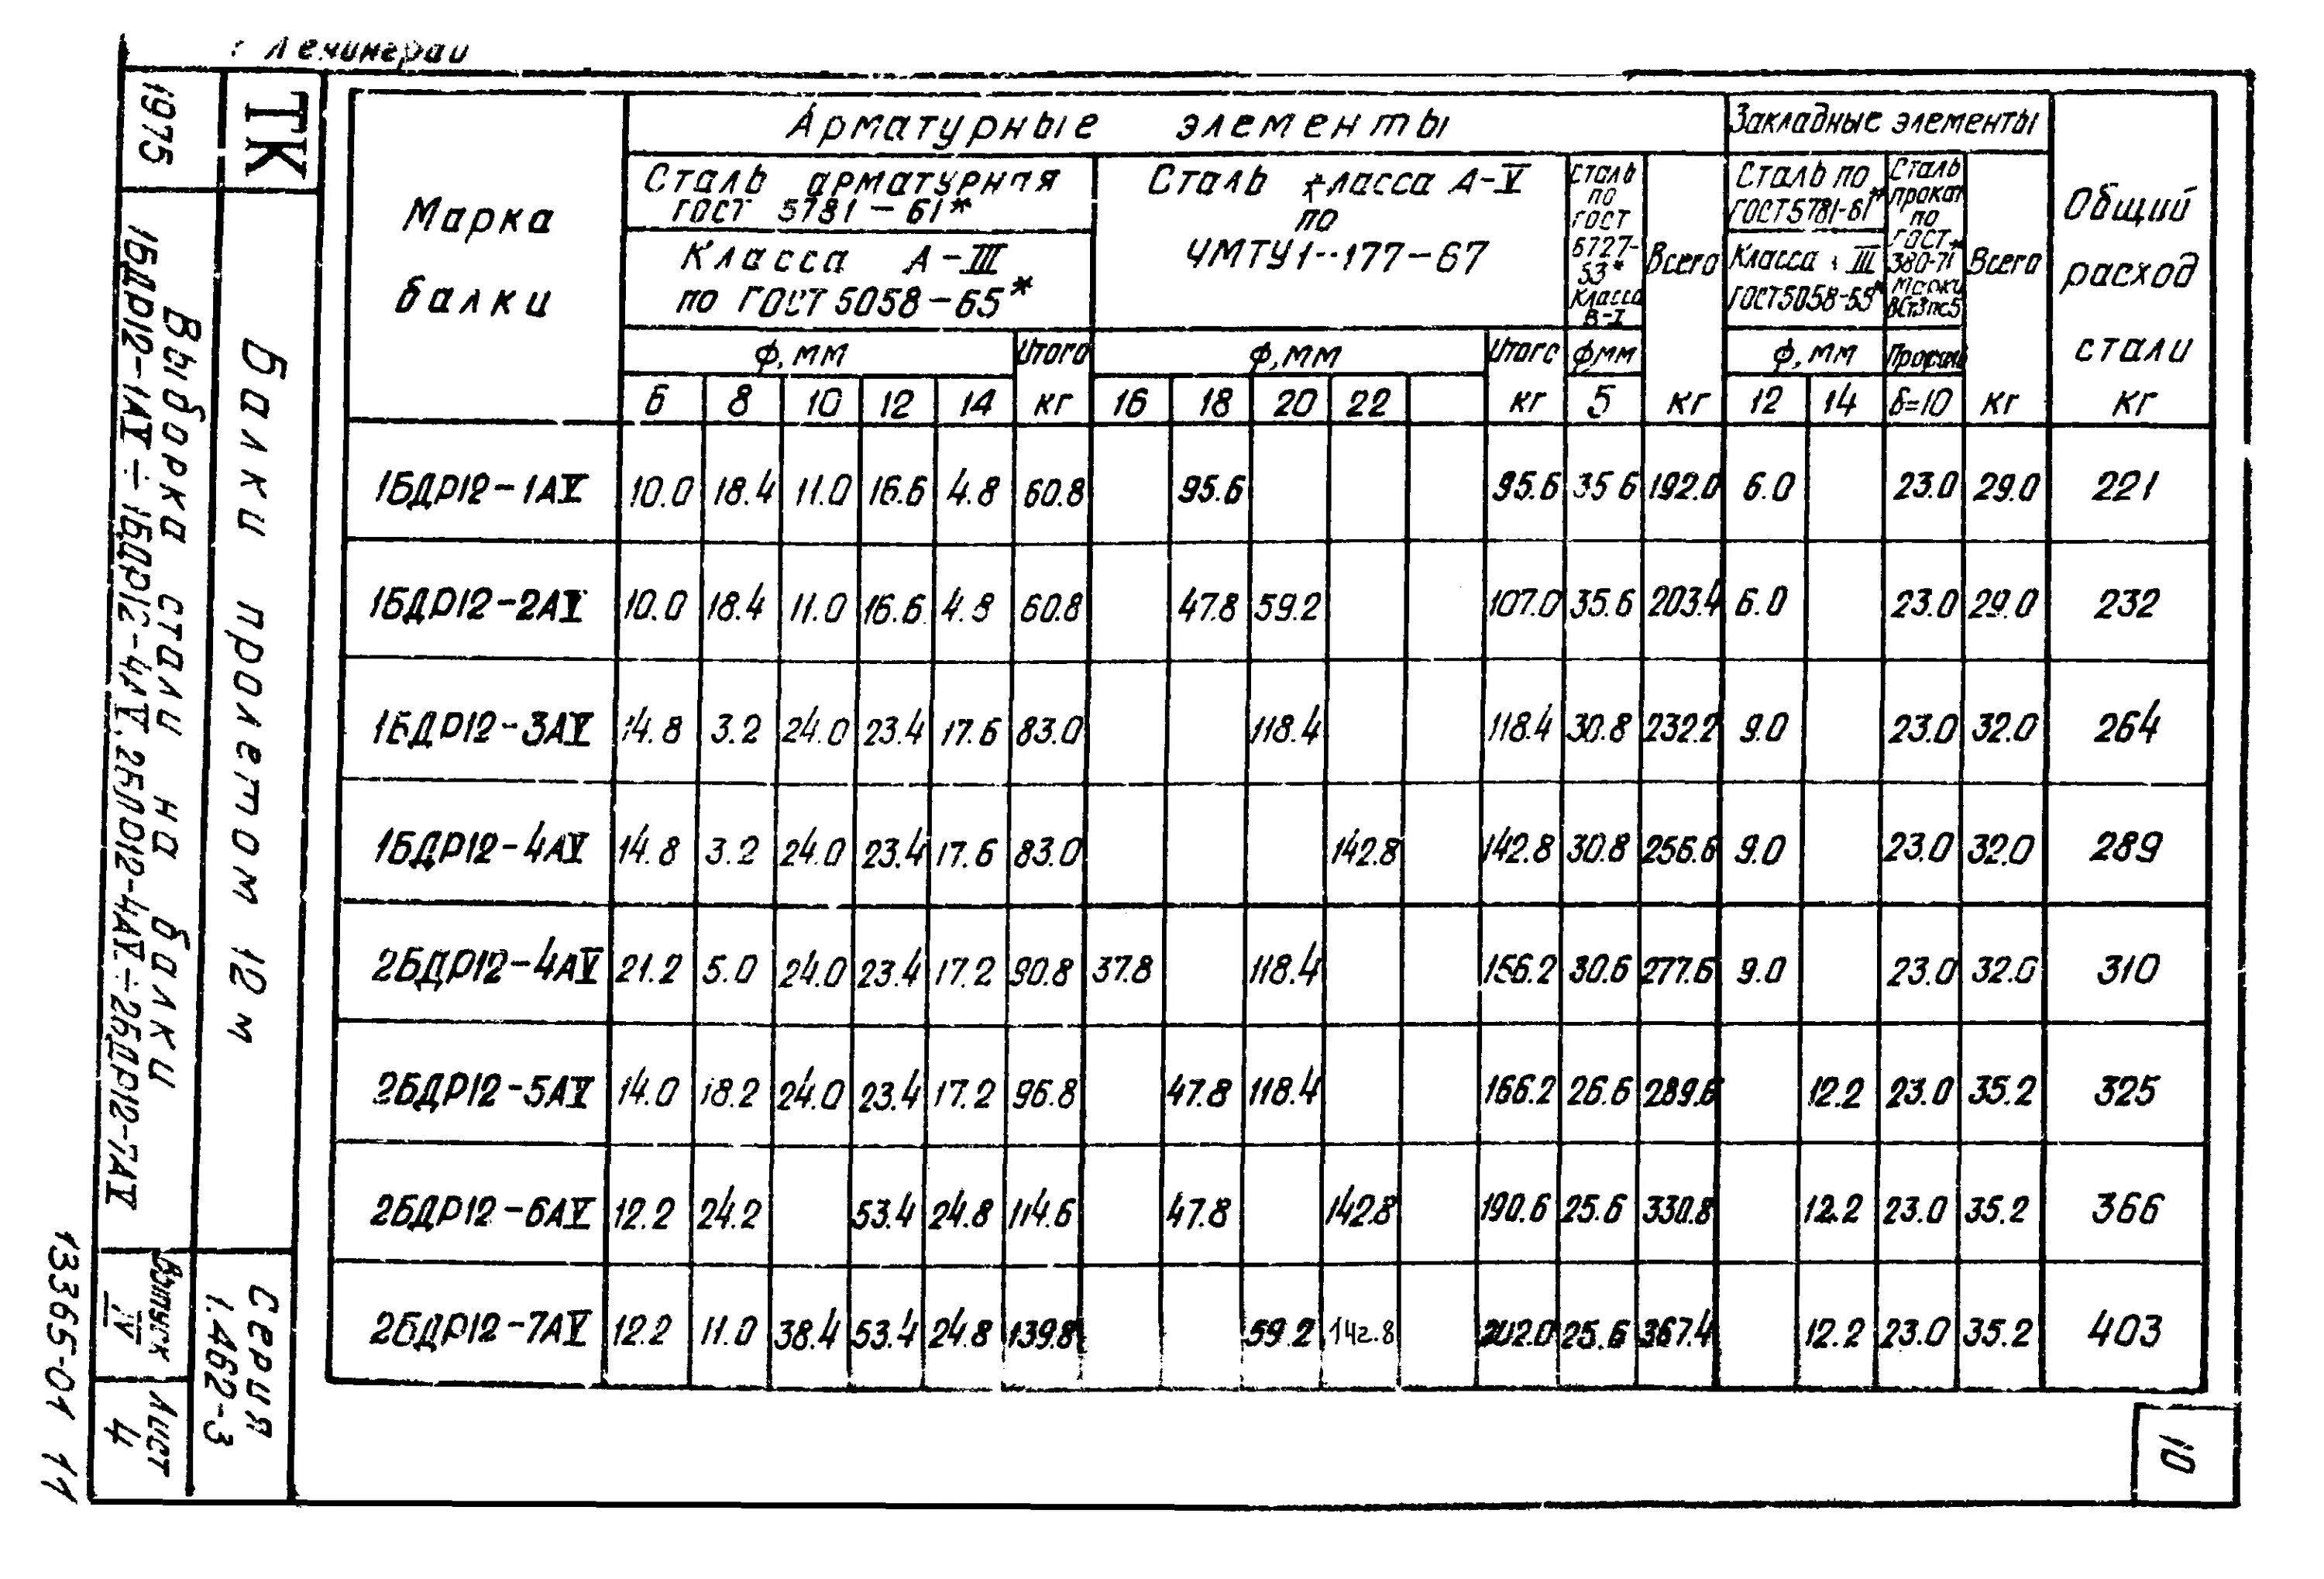 г Ленинград
1975
ТК
Балки пролетом 12 м
Выборка стали на балки
1БДР12-1АV ÷ 1БДР12-4АV, 2БДР12-4АV ÷ 2БДР12-7АV
Серия
1.462-3
Выпуск
IV
Лист
4
13365-01 11
Марка балки
Арматурные элементы
Закладные элементы
Общий расход стали кг
Сталь арматурная
ГОСТ 5781-61*
Класса А-III
по ГОСТ 5058-65*
Сталь класса А-V
по
ЧМТУ 1-177-67
Сталь
по
ГОСТ
6727-
53*
Класса
В-I
Всего
Сталь по
ГОСТ 5781-61*
Класса А III
ГОСТ 5058-65*
Сталь
прокат
по
ГОСТ*
380-71
Марки
ВСт3пс5
Всего
ф, мм Итого ф, мм Итого ф мм ф, мм
6 8 10 12 14 кг 16 18 20 22 кг 5 кг 12 14 δ=10 кг
1БДР12-1АV 10.0 18.4 11.0 16.6 4.8 60.8 95.6 95.6 35 6 192.0 6.0 23.0 29.0 221
1БДР12-2АV 10.0 18.4 11.0 16.6 4.8 60.8 47.8 59.2 107.0 35.6 203.4 6.0 23.0 29.0 232
1БДР12-3АV 14.8 3.2 24.0 23.4 17.6 83.0 118.4 118.4 30.8 232.2 9.0 23.0 32.0 264
1БДР12-4АV 14.8 3.2 24.0 23.4 17.6 83.0 142.8 142.8 30.8 256.6 9.0 23.0 32.0 289
2БДР12-4АV 21.2 5.0 24.0 23.4 17.2 90.8 37.8 118.4 156.2 30.6 277.6 9.0 23.0 32.0 310
2БДР12-5АV 14.0 18.2 24.0 23.4 17.2 96.8 47.8 118.4 166.2 26.6 289.6 12.2 23.0 35.2 325
2БДР12-6АV 12.2 24.2 53.4 24.8 114.6 47.8 142.8 190.6 25.6 330.8 12.2 23.0 35.2 366
2БДР12-7АV 12.2 11.0 38.4 53.4 24.8 139.8 59.2 142.8 202.0 25.6 367.4 12.2 23.0 35.2 403
10